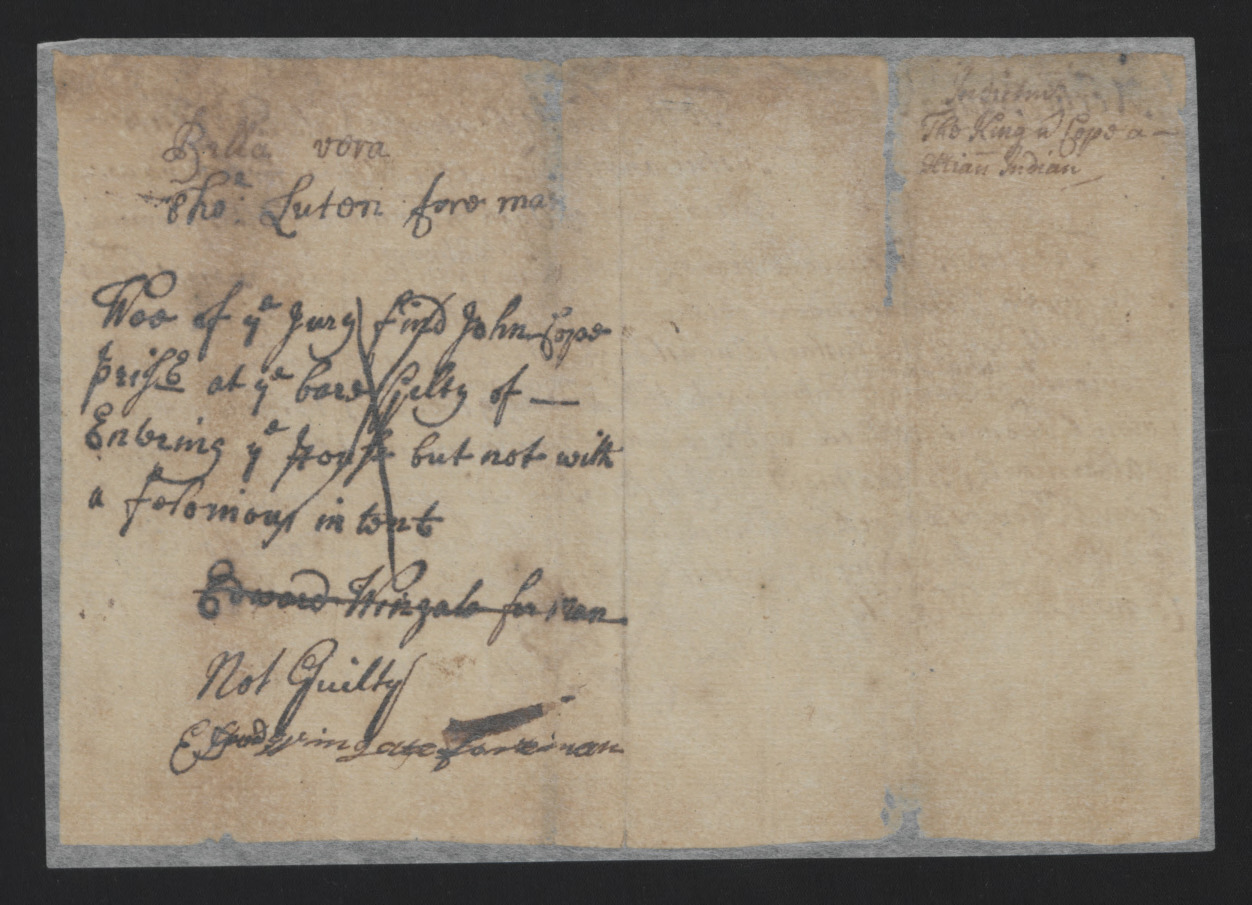 Billa vera
Tho: Luten fore ma
Wee of ye Jury find John Cope
prisr at ye bare Gilty of —
Entring ye house but not with
a felonious intent
Edward Wingate for man
Not Guilty
Edwd Wingate foreman
Indictmt
The King v Cope a —
Indian